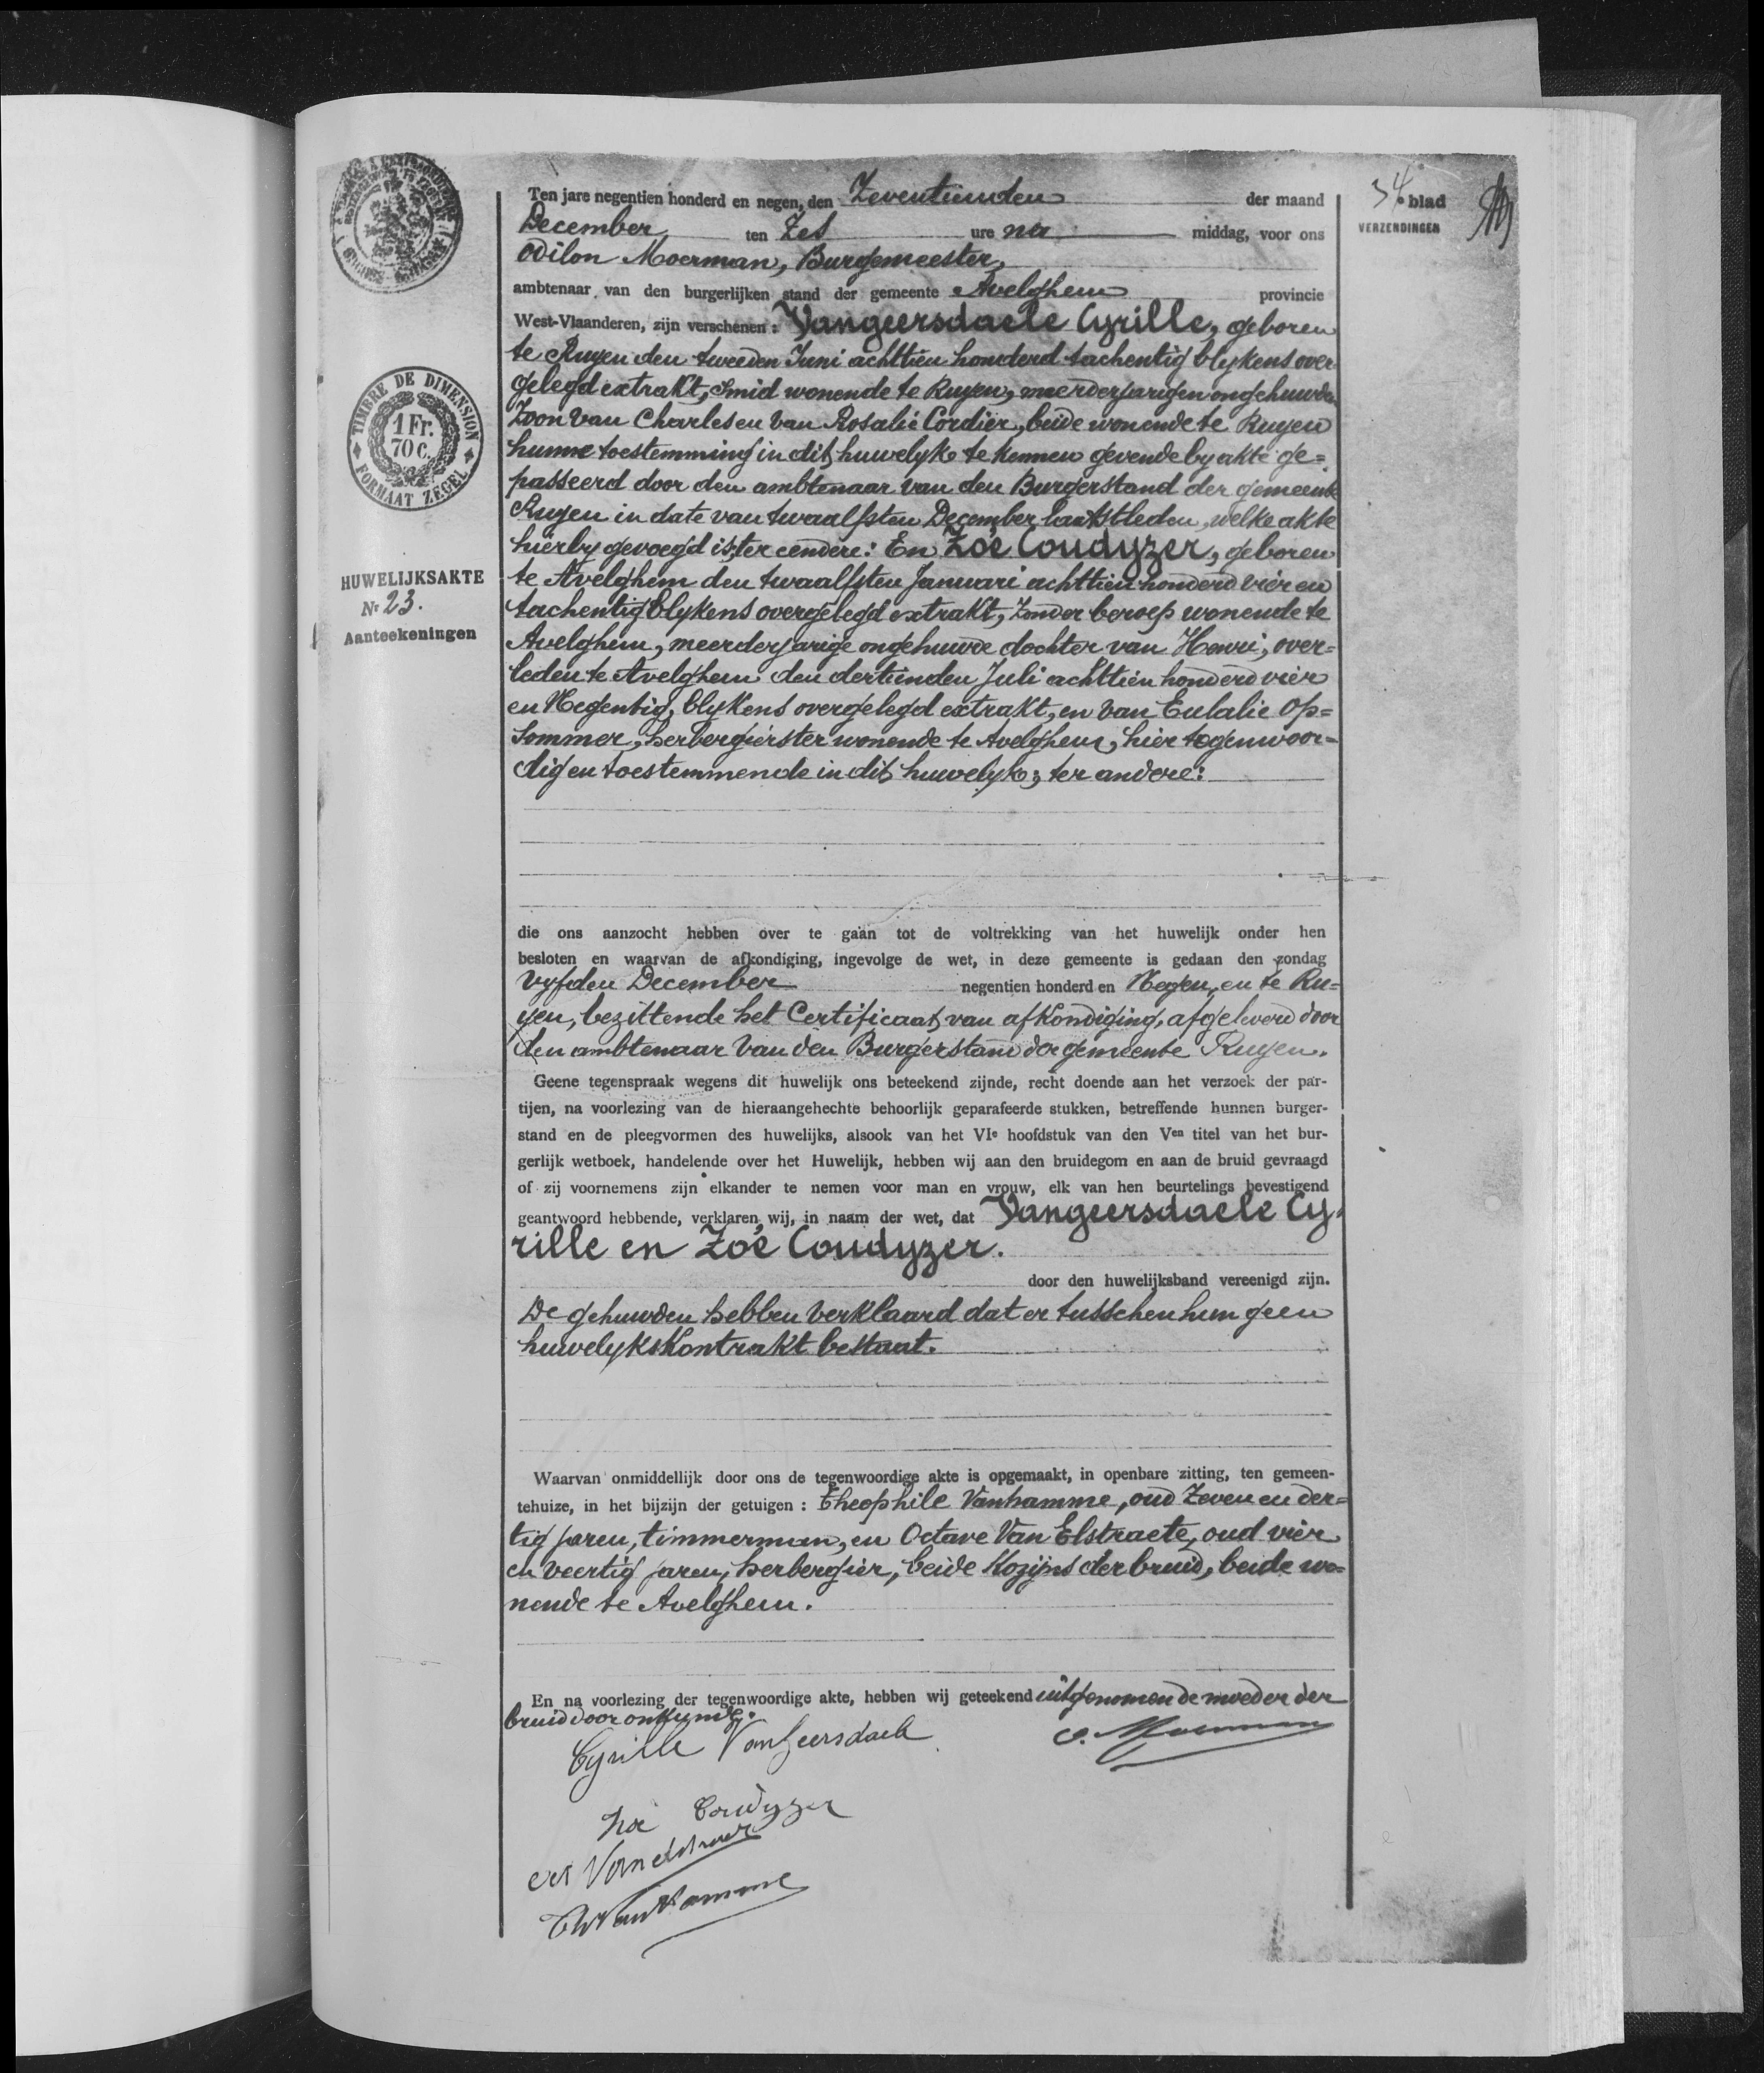 Ten jare negentien honderd en negen, den Zeventienden der maand
34e blad
VERZENDINGEN
December ten Zes ure na middag, voor ons
Odilon Moerman, Burgemeester,
ambtenaar van den burgerlijken stand der gemeente Avelghem provincie
West-Vlaanderen, zijn verschenen : Vangeersdaele Cyrille, geboren
te Ruyen den tweeden Juni achttien honderd tachentig blykens over
gelegd extrakt, smid wonende te Ruyen, meerderjarigen ongehuwden
Zoon van Charles en van Rosalie Cordier, beide wonende te Ruyen
hunne toestemming in dit huwelyk te kennen gevende by akte ge=
passeerd door den ambtenaar van den Burgerstand der gemeente
Ruyen in date van twaalfsten December laatstleden, welke akte
hierby gevoegd is, ter eendere: En Zoé Coudyzer, geboren
te Avelghem den twaalfsten Januari achttien honderd vier en
tachentig blykens overgelegd extrakt, Zonder beroep wonende te
Avelghem, meerderjarige ongehuwde dochter van Henri, over=
leden te Avelghem den dertienden Juli achttien honderd vier
en Negentig, blykens overgelegd extrakt, en van Eulalie Op=
sommer, herbergierster wonende te Avelghem, hier tegenwoor=
dig en toestemmende in dit huwelyk; ter andere:
TIMBRE DE DIMENSION
1 Fr.
70 C.
FORMAAT ZEGEL
HUWELIJKSAKTE
Nr 23.
Aanteekeningen
die ons aanzocht hebben over te gaan tot de voltrekking van het huwelijk onder hen
besloten en waarvan de afkondiging, ingevolge de wet, in deze gemeente is gedaan den zondag
Vyfden December negentien honderd en Negen, en te Ru=
yen, bezittende het Certificaat van afkondiging, afgeleverd door
den ambtenaar van den Burgerstand der gemeente Ruyen.
Geene tegenspraak wegens dit huwelijk ons beteekend zijnde, recht doende aan het verzoek der par-
tijen, na voorlezing van de hieraangehechte behoorlijk geparafeerde stukken, betreffende hunnen burger-
stand en de pleegvormen des huwelijks, alsook van het VIe hoofdstuk van den Ven titel van het bur-
gerlijk wetboek, handelende over het Huwelijk, hebben wij aan den bruidegom en aan de bruid gevraagd
of zij voornemens zijn elkander te nemen voor man en vrouw, elk van hen beurtelings bevestigend
geantwoord hebbende, verklaren wij, in naam der wet, dat Vangeersdaele Cy=
rille en Zoé Coudyzer.
door den huwelijksband vereenigd zijn.
De gehuwden hebben verklaard dat er tusschen hun geen
huwelykskontrakt bestaat.
Waarvan onmiddellijk door ons de tegenwoordige akte is opgemaakt, in openbare zitting, ten gemeen-
tehuize, in het bijzijn der getuigen : Theophile Vanhamme, oud Zeven en der=
tig jaren, timmerman, en Octave Van Elstraete, oud vier
en veertig jaren, herbergier, beide kozijns der bruid, beide wo=
nende te Avelghem.
En na voorlezing der tegenwoordige akte, hebben wij geteekend uitgenomen de moeder der
bruid door onkunde.
Cyrille Vangeersdaele
O. Moerman
Zoé Coudyzer
Oct Vanelstraete
Th Vanhamme